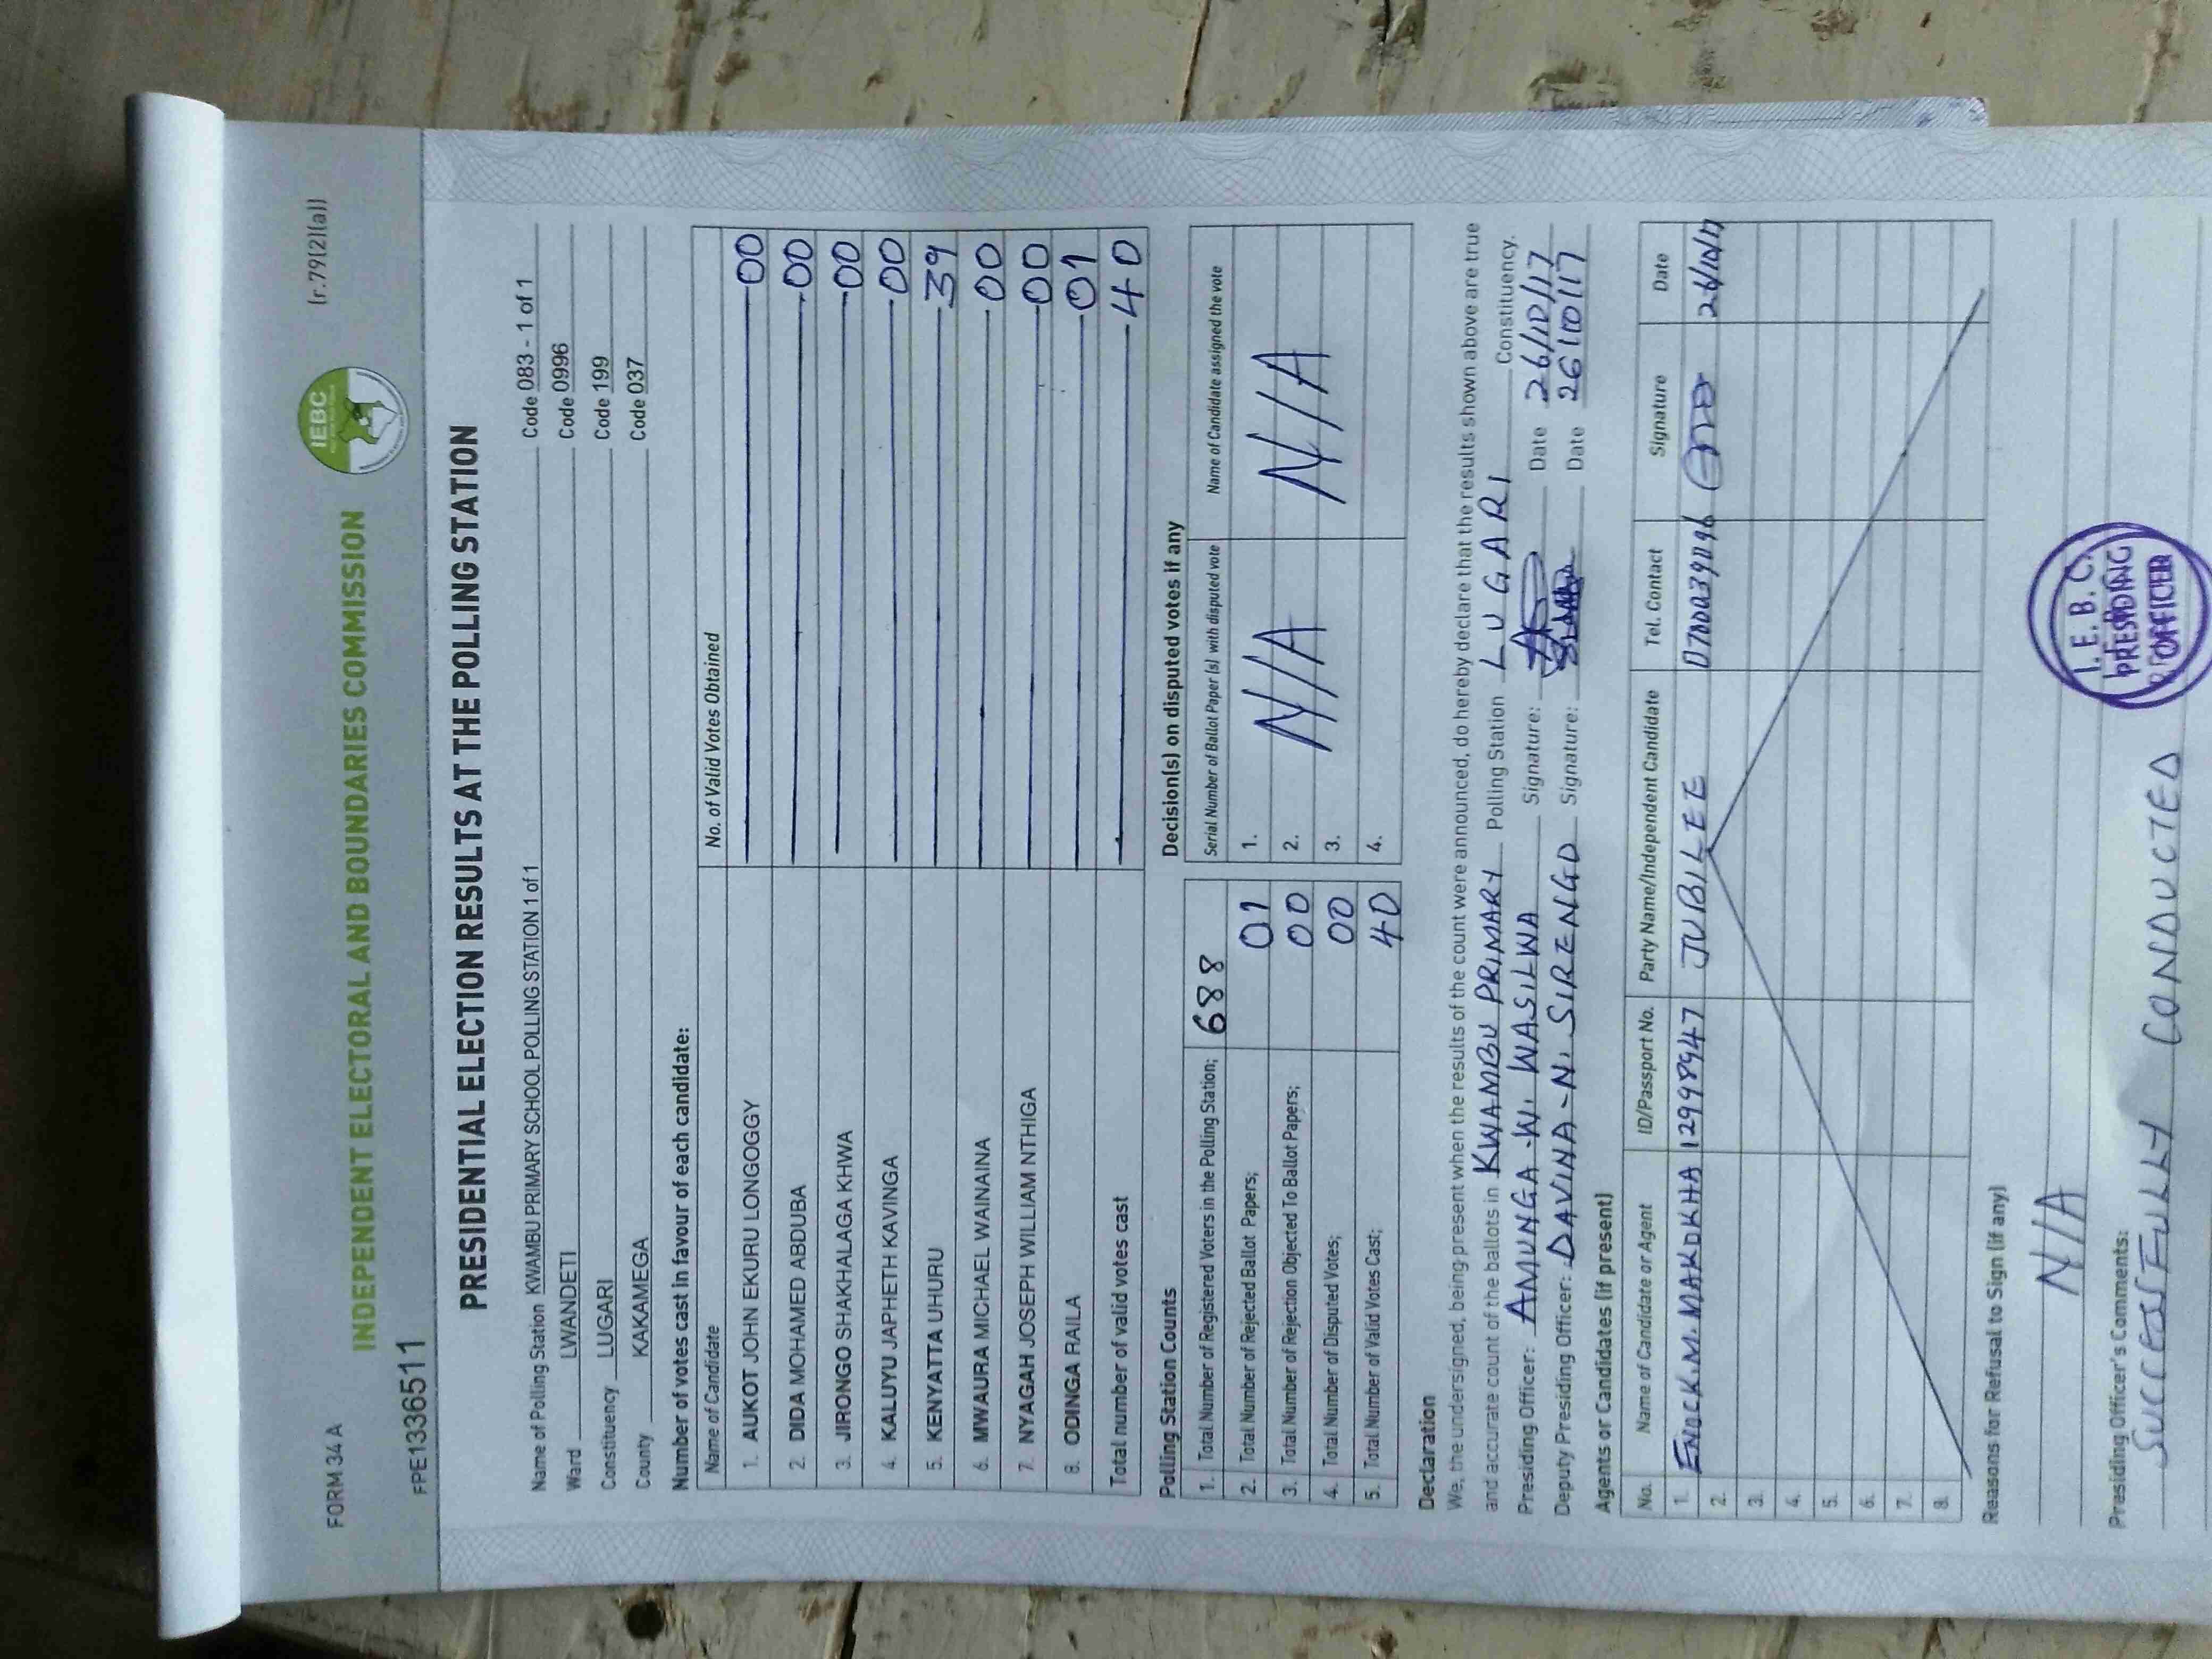 FORM 34 A
(r.79(2)(a))
INDEPENDENT ELECTORAL AND BOUNDARIES COMMISSION
IEBC
FPE1336511
PRESIDENTIAL ELECTION RESULTS AT THE POLLING STATION
Name of Polling Station KWAMBU PRIMARY SCHOOL POLLING STATION 1 of 1 Code 083 - 1 of 1
Ward LWANDETI Code 0996
Constituency LUGARI Code 199
County KAKAMEGA Code 037
Number of votes cast in favour of each candidate:
Name of Candidate No. of Valid Votes Obtained
1. AUKOT JOHN EKURU LONGOGGY 00
2. DIDA MOHAMED ABDUBA 00
3. JIRONGO SHAKHALAGA KHWA 00
4. KALUYU JAPHETH KAVINGA 00
5. KENYATTA UHURU 39
6. MWAURA MICHAEL WAINAINA 00
7. NYAGAH JOSEPH WILLIAM NTHIGA 00
8. ODINGA RAILA 01
Total number of valid votes cast 40
Polling Station Counts
1. Total Number of Registered Voters in the Polling Station; 688
2. Total Number of Rejected Ballot Papers; 01
3. Total Number of Rejection Objected To Ballot Papers; 00
4. Total Number of Disputed Votes; 00
5. Total Number of Valid Votes Cast; 40
Decision(s) on disputed votes if any
Serial Number of Ballot Paper (s) with disputed vote Name of Candidate assigned the vote
1.
2. N/A N/A
3.
4.
Declaration
We, the undersigned, being present when the results of the count were announced, do hereby declare that the results shown above are true
and accurate count of the ballots in KWAMBU PRIMARY Polling Station LUGARI Constituency.
Presiding Officer: AMUNGA -W. WASILWA Signature: Date 26/10/17
Deputy Presiding Officer: DAVINA - N. SIRENGO Signature: Date 26/10/17
Agents or Candidates (if present)
No. Name of Candidate or Agent ID/Passport No. Party Name/Independent Candidate Tel. Contact Signature Date
1. ENOCK.M.MAKOKHA 12998947 JUBILEE 26/10/17
2.
3.
4.
5.
6.
7.
8.
Reasons for Refusal to Sign (if any)
N/A
Presiding Officer's Comments:
SUCCESSFULLY CONDUCTED
I. E. B. C.
PRESIDING
OFFICER